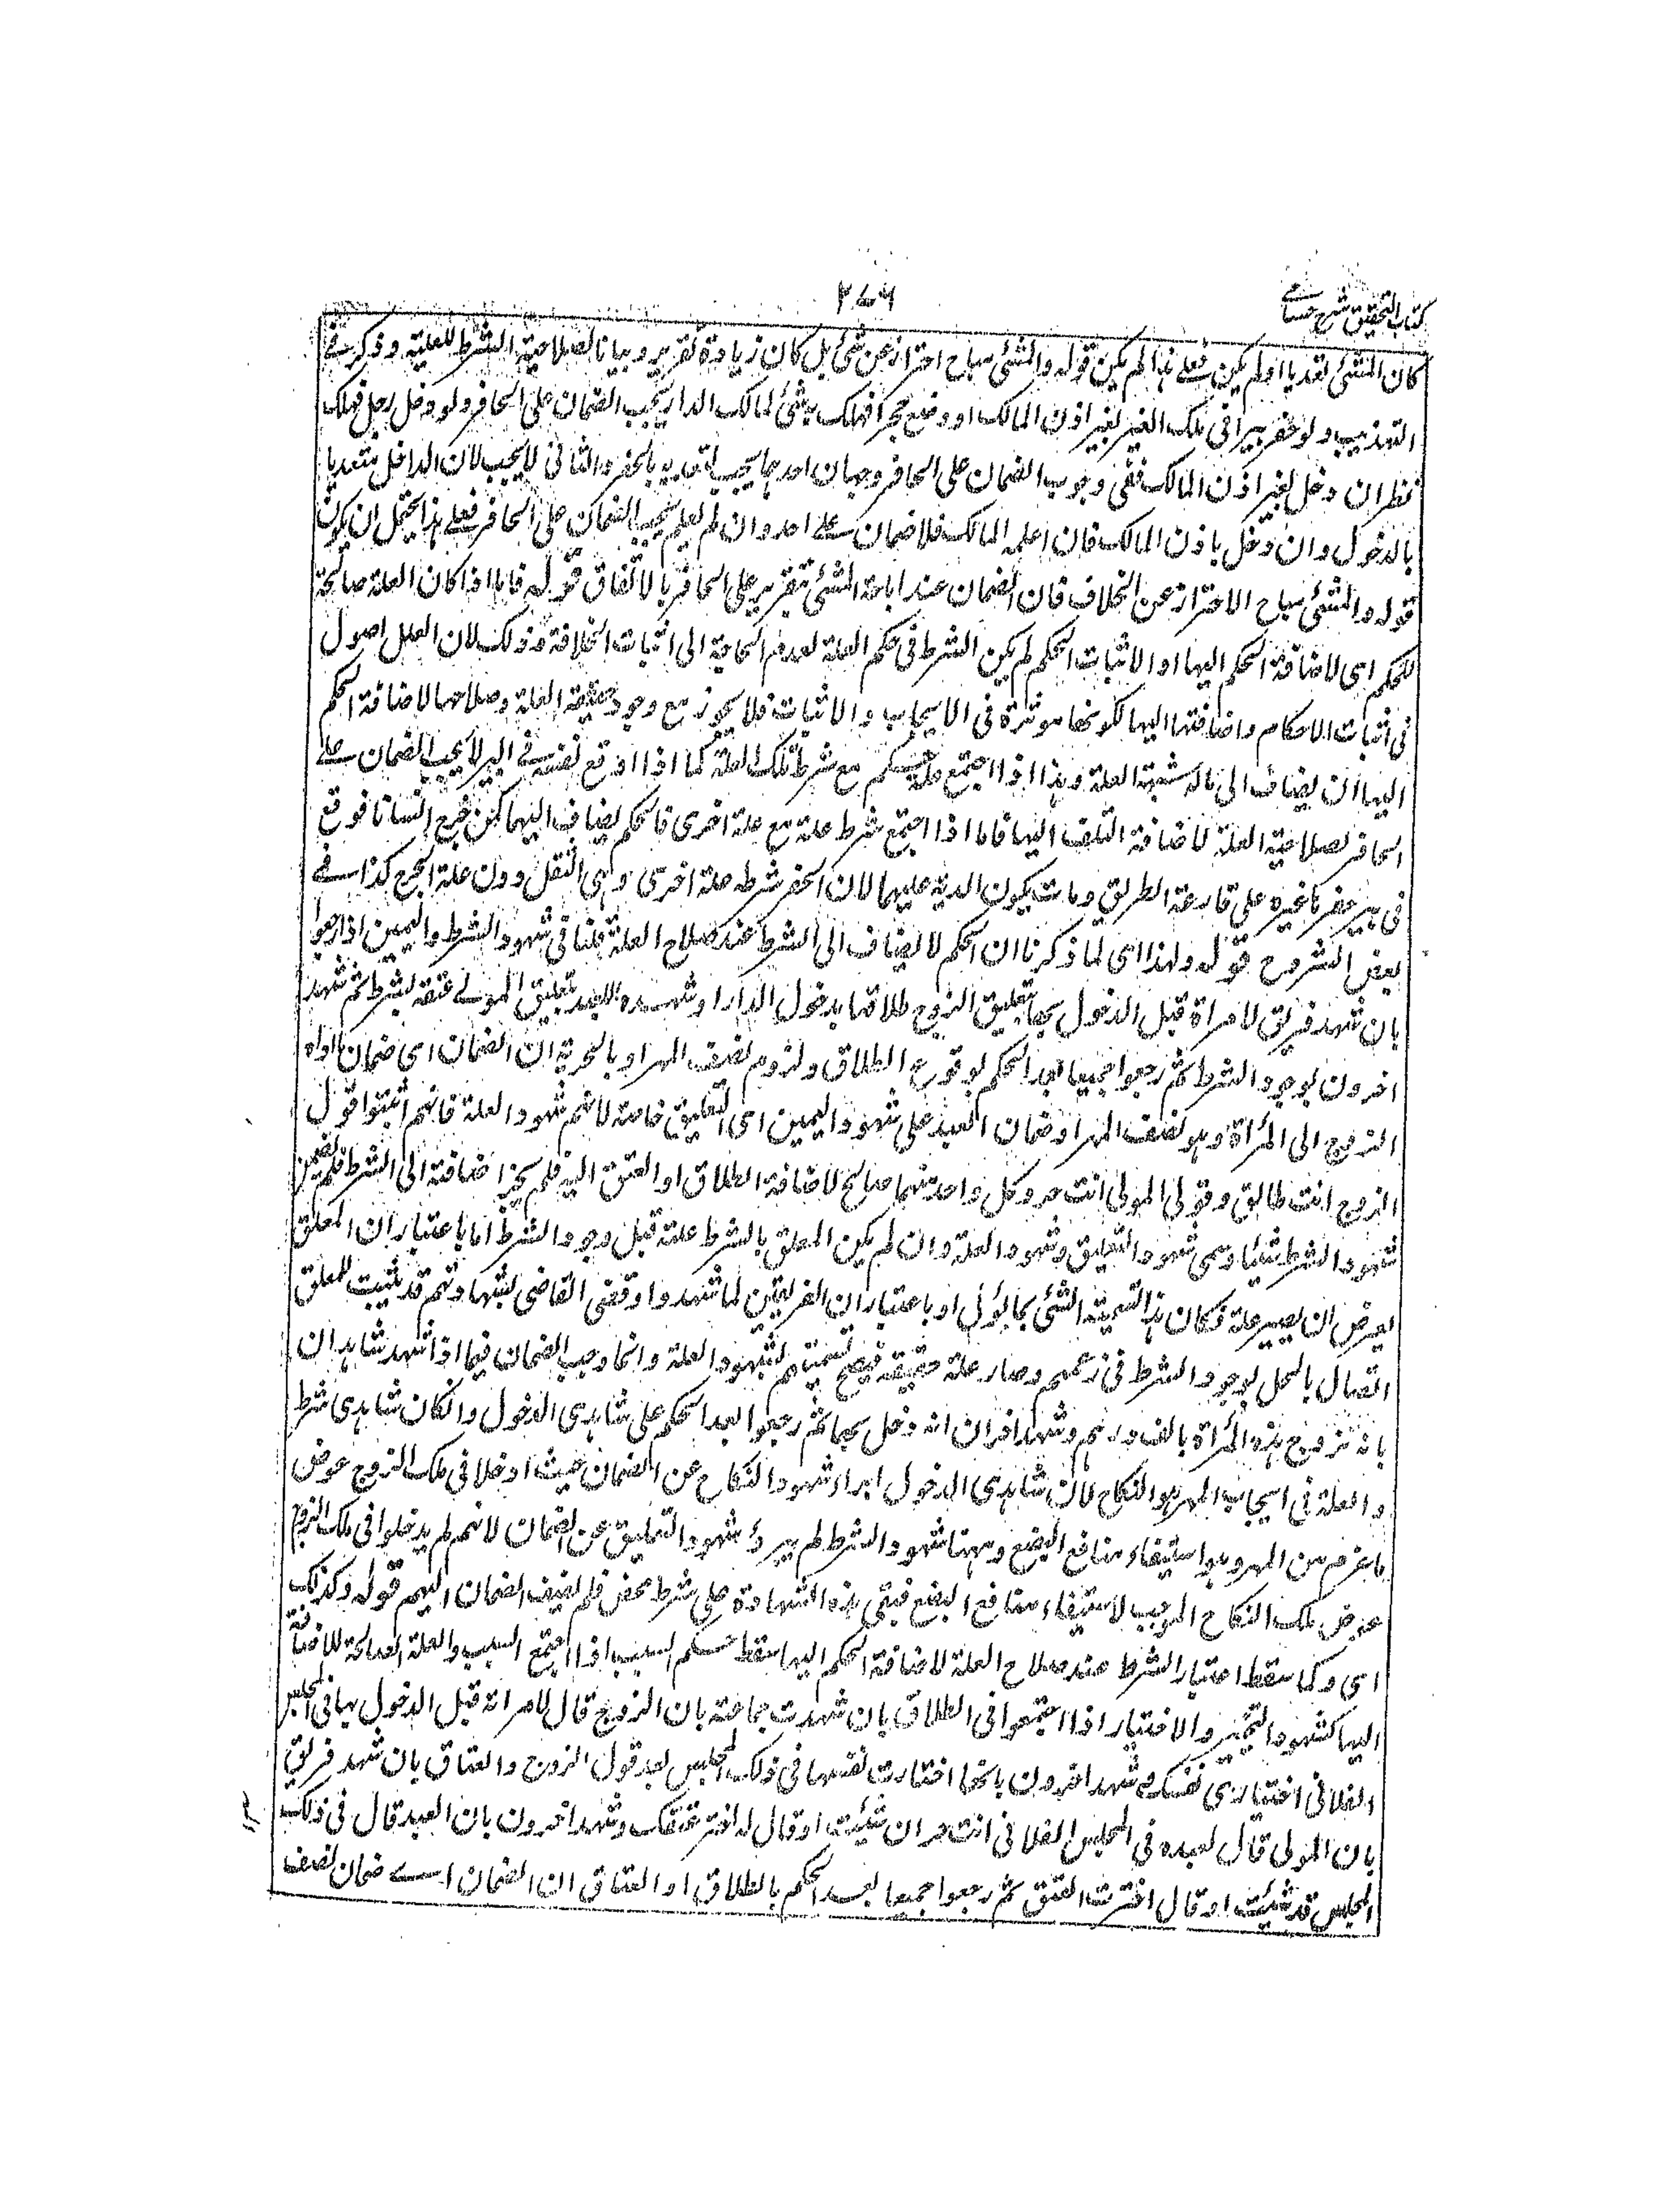 كتاب التحقيق شرح حسامي
٢٧٦
كان المشي تعديا اولم يكن فعلى هذا لم يكن قوله والمشي مباح احترازا عن شئ بل كان زيادة تقرير وبيانا لصلاحية الشرط للعلية وذكر في
التهذيب ولو حفر بيرا في ملك الغير بغير اذن المالك او وضع حجرا فهلك به شئ لمالك الدار يجب الضمان على الحافر ولو دخل رجل فهلك
نظر ان دخل بغير اذن المالك ففي وجوب الضمان على الحافر وجهان احدهما يجب لتعديه بالحفر والثاني لا يجب لان الداخل متعديا
بالدخول وان دخل باذن المالك فان اعلمه المالك فلا ضمان على احد وان لم يعلم يجب الضمان على الحافر فعلى هذا يحتمل ان يكون
قوله والمشي مباح الاحتراز عن الخلاف فان الضمان عند اباحة المشي تقرير على الحافر بالاتفاق قوله فاما اذا كان العلة صالحة
للحكم اى لاضافة الحكم اليها او لاثبات الحكم لم يكن الشرط فى حكم العلة لعدم الحاجة الى اثبات الخلافة وذلك لان العلل اصول
فى اثبات الاحكام واضافتها اليها لكونها موثرة فى الايجاب والاثبات فلا يجوز مع وجود حقيقة العلة وصلاحها لاضافة الحكم
اليها ان يضاف الى ماله شبهة العلة وهذا اذا اجتمع علة حكم مع شرط تلك العلة كما اذا اوقع نفسه فى البير لا يجب الضمان على
الحافر لصلاحية العلة لاضافة التلف اليها فاما اذا اجتمع شرط علة مع علة اخرى فالحكم يضاف اليهما كمن جرح انسانا فوقع
فى بير حفرها غيره على قارعة الطريق ومات يكون الدية عليهما لان الحفر شرط علة اخرى وهى الثقل دون علة الجرح كذا فى
بعض الشروح قوله ولهذا اى لما ذكرنا ان الحكم لا يضاف الى الشرط عند صلاح العلة قلنا فى شهود الشرط واليمين اذا رجعوا
بان شهد فريق لامراة قبل الدخول بها بتعليق الزوج طلاقها بدخول الدار او شهدوا للعبد بتعليق المولى عتقه بشرط ثم شهد
اخرون بوجود الشرط ثم رجعوا جميعا بعد الحكم بوقوع الطلاق ولزوم نصف المهر او بالحرية ان الضمان اى ضمان ما اداه
الزوج الى المرأة وهو نصف المهر او ضمان العبد على شهود اليمين اى التعليق خاصة لانهم شهود العلة فانهم اثبتوا قول
الزوج انت طالق وقول المولى انت حر وكل واحد منهما صالح لاضافة الطلاق او العتق اليه فلم يجز اضافته الى الشرط فلم يضمن
شهود الشرط شيئا وسمى شهود التعليق شهود العلة وان لم يكن المعلق بالشرط علة قبل وجود الشرط اما باعتبار ان المعلق
بعرض ان يصير علة فكان هذا تسمية الشئ بما يؤل او باعتبار ان الفريقين لما شهدوا وقضى القاضى بشهادتهم قد يثبت للمعلق
اتصال بالمحل بوجود الشرط فى زعمهم وصار علة حقيقة فيصح تسميتهم بشهود العلة وانما وجب الضمان فيما اذا شهد شاهدان
بانه تزوج هذه المرأة بالف درهم وشهد اخران انه دخل بها ثم رجعوا بعد الحكم على شاهدى الدخول وان كان شاهدى شرط
والعلة فى ايجاب المهر هو النكاح لان شاهدى الدخول ابرءا شهود النكاح عن الضمان حيث ادخلا فى ملك الزوج عوض
ما غرم من المهر وهو استيفاء منافع البضع وههنا شهود الشرط لم يبرؤ شهود التعليق عن الضمان لانهم لم يدخلوا فى ملك الزوج
عوض ملك النكاح الموجب لاستيفاء منافع البضع فبقى هذه الشهادة على شرط محض فلم يضف الضمان اليهم قوله وكذلك
اى وكما سقط اعتبار الشرط عند صلاح العلة لاضافة الحكم اليها سقط حكم السبب اذا اجتمع السبب والعلة الصالحة للاضافة
اليها كشهود التخيير والاختيار اذا اجتمعوا فى الطلاق بان شهدت جماعة بان الزوج قال لامراته قبل الدخول بها فى المجلس
الفلانى اختيارى نفسك وشهد اخرون بانها اختارت نفسها فى ذلك المجلس بعد قول الزوج والعتاق بان شهد فريق
بان المولى قال لعبده فى المجلس الفلانى انت حر ان شئت او قال له اختر عتقك وشهد اخرون بان العبد قال فى ذلك
المجلس قد شئت او قال اخترت العتق ثم رجعوا جميعا بعد الحكم بالطلاق او العتاق ان الضمان اى ضمان نصف